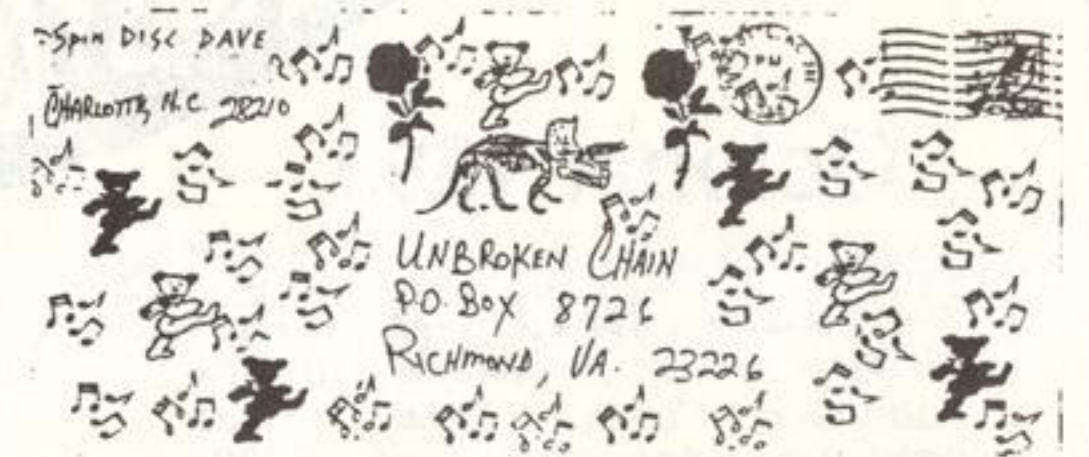 Spin DISC DAVE
CHARLOTTE, N.C. 28210
PM
UNBROKEN CHAIN
P.O. BOX 8726
RICHMOND, VA. 23226